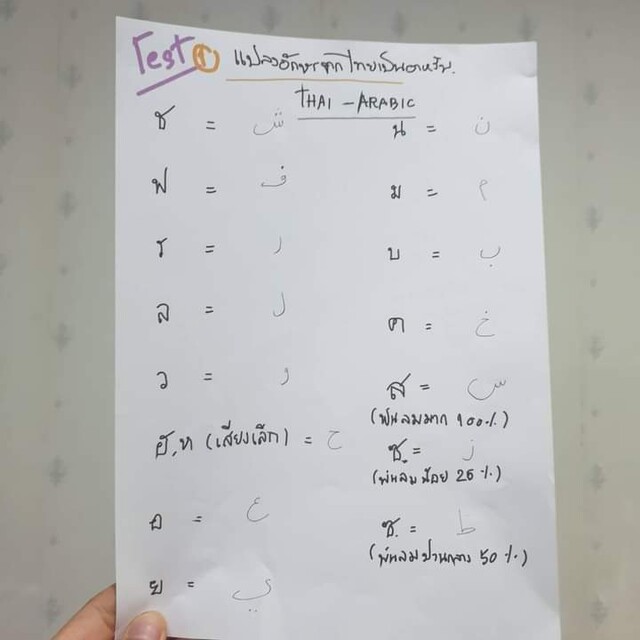 Test ①
แปลงอักษรจากไทยเป็นอาหรับ.
THAI - ARABIC
ช = ش
ฟ = ف
ร = ر
ล = ل
ว = و
ฮ,ห (เสียงเล็ก) = ح
อ = ع
ย = ي
น = ن
ม = م
บ = ب
ค = خ
ส = س
(พ่นลมมาก 100%)
ซ. = ز
(พ่นลมน้อย 25%)
ซ. = ظ
(พ่นลมปานกลาง 50%)